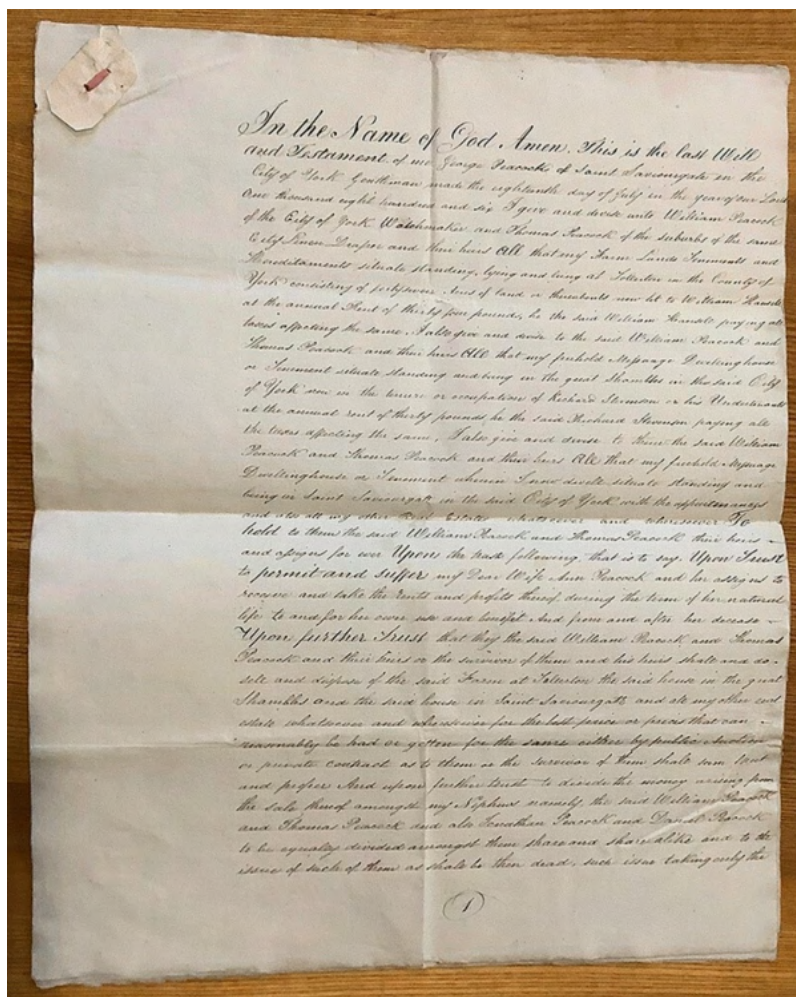 In the Name of God Amen. This is the last Will
and Testament of me George Peacock of Saint Saviourgate in the
City of York Gentleman made the eighteenth day of July in the year of our Lord
One thousand eight hundred and six I give and devise unto William Peacock
of the City of York Watchmaker and Thomas Peacock of the suburbs of the same
City Linen Draper and their heirs All that my Farm Lands Tenements and
Hereditaments situate standing, lying and being at Tollerton in the County of
York consisting of forty seven Acres of land or thereabouts now let to William
at the annual Rent of thirty four pounds, he the said William paying all
taxes affecting the same. I also give and devise to the said William Peacock and
Thomas Peacock and their heirs All that my freehold Messuage Dwellinghouse
or Tenement situate standing and being in the great Shambles in the said City
of York now in the tenure or occupation of Richard Stevenson or his Undertenants
at the annual rent of thirty pounds, he the said Richard Stevenson paying all
the taxes affecting the same, I also give and devise to them the said William
Peacock and Thomas Peacock and their heirs All that my freehold Messuage
Dwellinghouse or Tenement wherein I now dwell situate standing and
being in Saint Saviourgate in the said City of York with the appurtenances
and also all my other Real Estate whatsoever and wheresoever To
hold to them the said William Peacock and Thomas Peacock their heirs -
and assigns for ever Upon the trust following, that is to say, Upon Trust
to permit and suffer my Dear Wife Ann Peacock and her assigns to
receive and take the rents and profits thereof during the term of her natural
life to and for her own use and benefit And from and after her decease -
Upon further Trust that they the said William Peacock and Thomas
Peacock and their heirs or the survivor of them and his heirs shall and do -
sell and dispose of the said Farm at Tollerton the said house in the great
Shambles and the said house in Saint Saviourgate and all my other real
estate whatsoever and wheresoever for the best price or prices that can -
reasonably be had or gotten for the same either by public Auction
or private contract as to them or the survivor of them shall seem best
and proper And upon further trust to divide the money arising from
the sale thereof amongst my Nephews namely the said William Peacock
and Thomas Peacock and also Jonathan Peacock and Daniel Peacock
to be equally divided amongst them share and share alike and to the
issue of such of them as shall be then dead, such issue taking only the
1